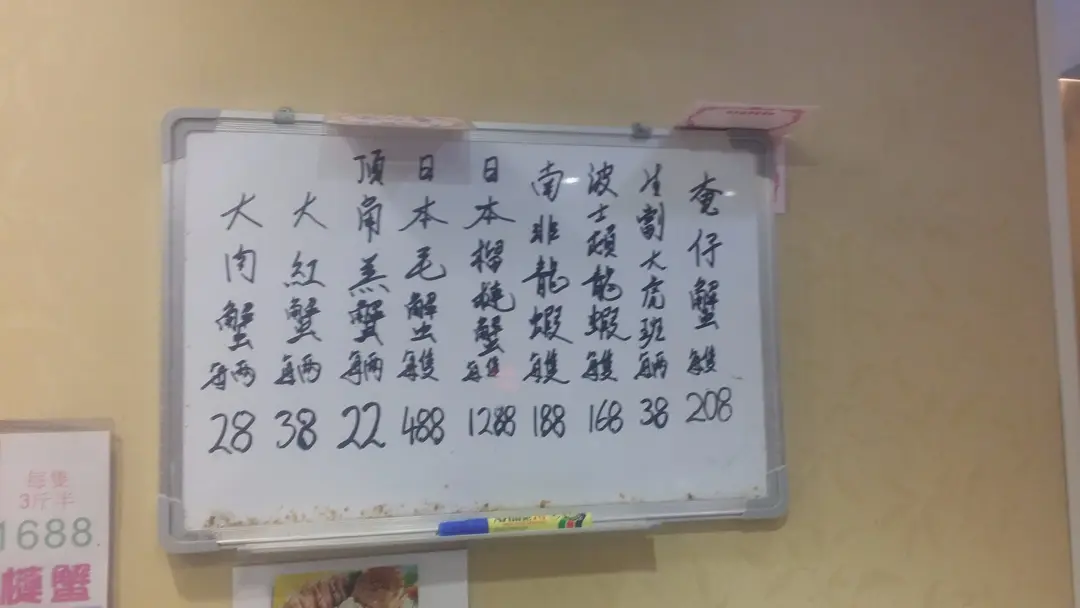 奄仔蟹每隻208
生劏大虎班每両38
波士頓龍蝦每隻168
南非龍蝦每隻188
日本榴槤蟹每隻1288
日本毛蟹每隻488
頂角羔蟹每両22
大紅蟹每両38
大肉蟹每両28
每隻
3斤半
1688
槤蟹